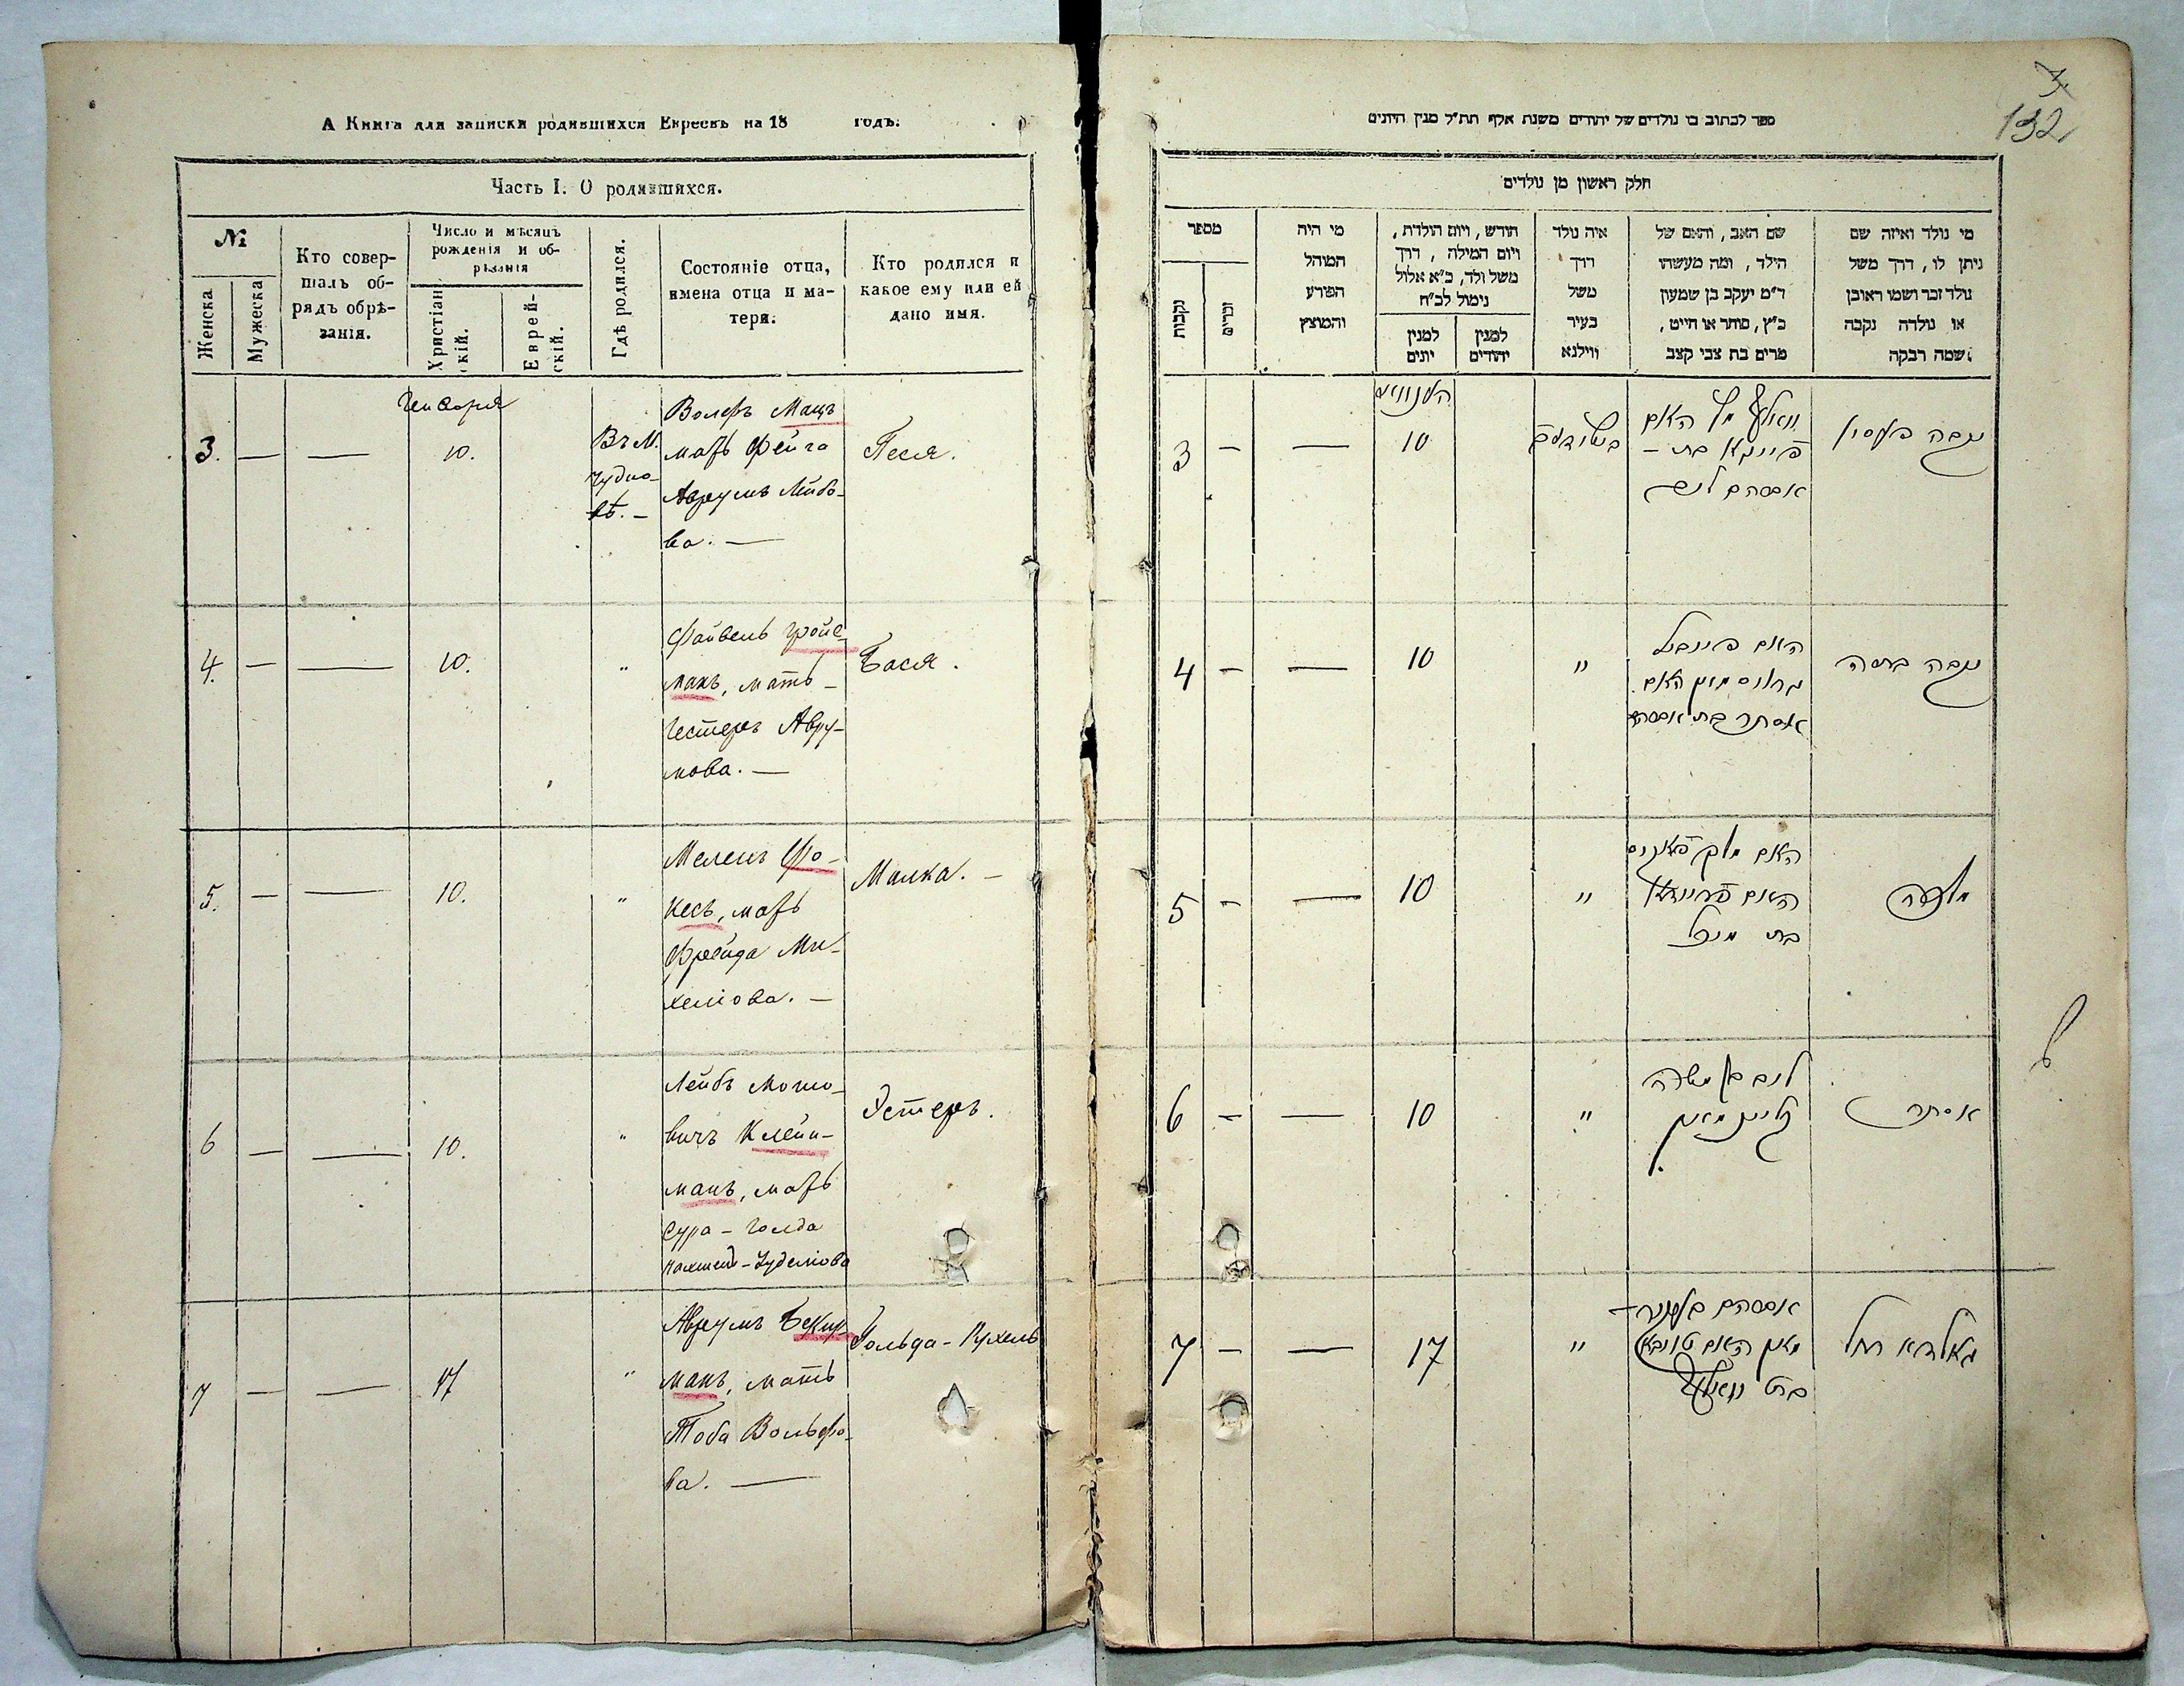 А Книга для записки родившихся Евреевъ на 18 годъ.
Часть I. О родившихся.
№
Женска
Мужеска
Кто совер-
шалъ об-
рядъ обрѣ-
занія.
Число и мѣсяцъ
рожденія и об-
рѣзанія
Христіан-
скій.
Еврей-
скій.
Гдѣ родился.
Состояніе отца,
имена отца и ма-
тери.
Кто родился и
какое ему или ей
дано имя.
Генваря
3. — — 10.
Въ М.
Чудно-
вѣ. —
Волфъ Мацъ
мать Фейга
Аврумъ Лейбо-
ва. —
Песя.
4. — — 10. "
Файвель Гройс-
манъ, мать —
Гестеръ Авру-
мова. —
Бася.
5. — — 10. "
Мелехъ Фо-
кесъ, мать
Фрейда Ми-
хелiова. —
Малка. —
6 — — 10. "
Лейбъ Мошо-
вичъ Клейн-
манъ, мать
Сура - Голда
Эстеръ.
7 — — 17 "
Аврумъ
манъ, мать
Тоба Вольфо-
ва. —
Гольда - Рухель
132
ספר לכתוב בו נולדים של יהודים משנת אלף תת״ל מנין היונים
חלק ראשון מן נולדים
מספר
נקבות
זכרים
מי היה
המוהל
הפורע
והמוצץ
חודש, ויום הולדת,
ויום המילה, דרך
משל ולד, כ״א אלול
נימול לכ״ח
למנין
יונים
למנין
יהודים
איה נולד
דרך
משל
בעיר
ווילנא
שם האב, והאם של
הילד, ומה מעשהו
ד״מ יעקב בן שמעון
כ״ץ, סוחר או חייט,
מרים בת צבי קצב
מי נולד ואיזה שם
ניתן לו, דרך משל
נולד זכר ושמו ראובן
או נולדה נקבה
ושמה רבקה
3 — — 10
וואלף מץ האם
פייגא בת —
אברהם ליב
נקבה
4 — — 10 "
האב פייוויל
גרויסמאן האם
אסתר בת אברהם
נקבה בַּסיה
5 — — 10 "
האב מלך
האם פריידא
בת מיכל
מלכה
6 — — 10 "
ליב בן משה
קליינמאן
אסתר
7 — — 17 "
אברהם
מאן האם טובא
בת וואלף
גאלדא רחל